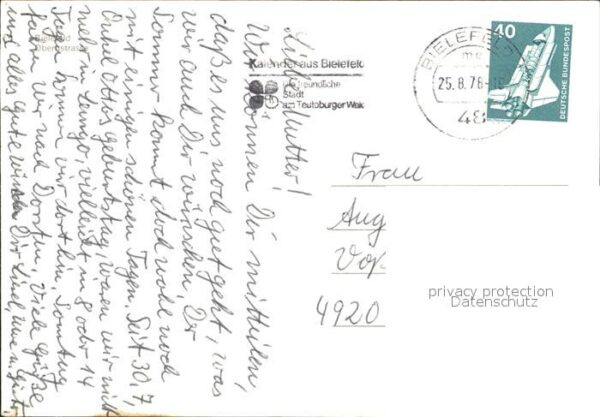 Bielefeld
Obernstrasse
Liebe Mutter!
Wir können Dir mitteilen,
daß es uns noch gut geht, was
wir auch Dir wünschen. Der
Sommer kommt doch wohl noch
mit einigen schönen Tagen. Seit 30.7,
Onkel Ottos Geburtstag, waren wir nicht
Lemgo, vielleicht in 8 oder 14
Tagen kommen wir dorthin, Sonntag
fahren wir nach Dorsten, Viele Grüße
und alles gute wünschen Dir
Kalender aus Bielefeld
die freundliche
Stadt
am Teutoburger Wald
BIELEFELD
25.8.78
48
40
DEUTSCHE BUNDESPOST
Frau
Aug
Voß
4920
privacy protection
Datenschutz